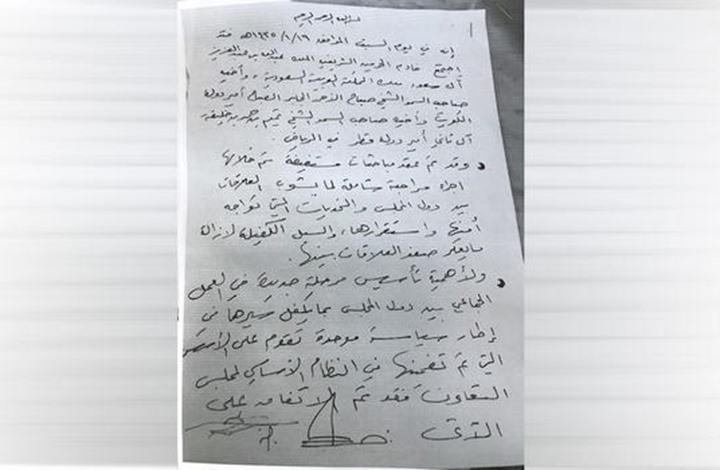 بسم الله الرحمن الرحيم
إنه في يوم السبت الموافق ١٤٣٥/١/١٩هـ فقد
إجتمع خادم الحرمين الشريفين الملك عبدالله بن عبدالعزيز
آل سعود ملك المملكة العربية السعودية، وأخيه
صاحب السمو الشيخ صباح الأحمد الجابر الصباح أمير دولة
الكويت وأخيه صاحب السمو الشيخ تميم بن حمد بن خليفه
آل ثاني أمير دولة قطر في الرياض.
• وقد تم عقد مباحثات مستفيضة تم خلالها
اجراء مراجعة شاملة لما يشوب العلاقات
بين دول المجلس والتحديات التي تواجه
أمنها واستقرارها، والسبل الكفيلة لازالة
مايعكر صفو العلاقات بينها.
• ولأهمية تأسيس مرحلة جديدة في العمل
الجماعي بين دول المجلس بما يكفل سيرها في
إطار سياسة موحدة تقوم على الأسس
التي تم تضمينها في النظام الأساسي لمجلس
التعاون فقد تم الاتفاق على
الآتي